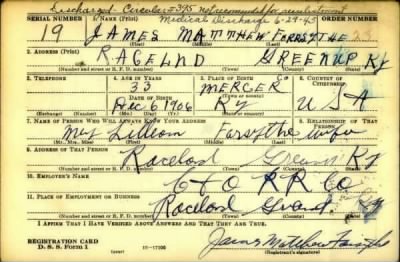 Discharged. Circular #395 not recommended for reenlistment
Medical Discharge 6-29-43
SERIAL NUMBER 1. NAME (Print) ORDER NUMBER
19 JAMES MATTHEW FORSYTHE 23
(First) (Middle) (Last)
2. ADDRESS (Print)
RACELND GREENUP Ky
(Number and street or R. F. D. number) (Town) (County) (State)
3. TELEPHONE 4. AGE IN YEARS 5. PLACE OF BIRTH 6. COUNTRY OF CITIZENSHIP
33 MERCER Co
DATE OF BIRTH (Town or county)
Dec 6 1906 Ky U S A
(Exchange) (No.) (Mo.) (Day) (Yr.) (State or country)
7. NAME OF PERSON WHO WILL ALWAYS KNOW YOUR ADDRESS 8. RELATIONSHIP OF THAT PERSON
Mrs Lilleom Forsythe wife
(Mr., Mrs., Miss) (First) (Middle) (Last)
9. ADDRESS OF THAT PERSON
Raceland Ky
(Number and street or R. F. D. number) (Town) (County) (State)
10. EMPLOYER'S NAME
C + O RR Co
11. PLACE OF EMPLOYMENT OR BUSINESS
Raceland Ky
(Number and street or R. F. D. number) (Town) (County) (State)
I AFFIRM THAT I HAVE VERIFIED ABOVE ANSWERS AND THAT THEY ARE TRUE.
REGISTRATION CARD
D. S. S. Form 1 (over) James Matthew Forsythe
(Registrant's signature)